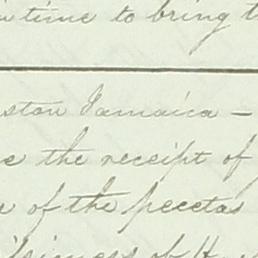 time to bring
ston Jamaica —
the receipt of
of the pecetas
of H